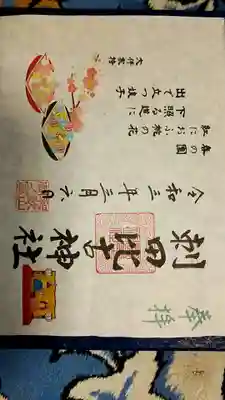 奉拝
刺田比古神社
令和三年三月六日
春の園
紅にほふ桃の花
下照る道に
出で立つ
大伴家持